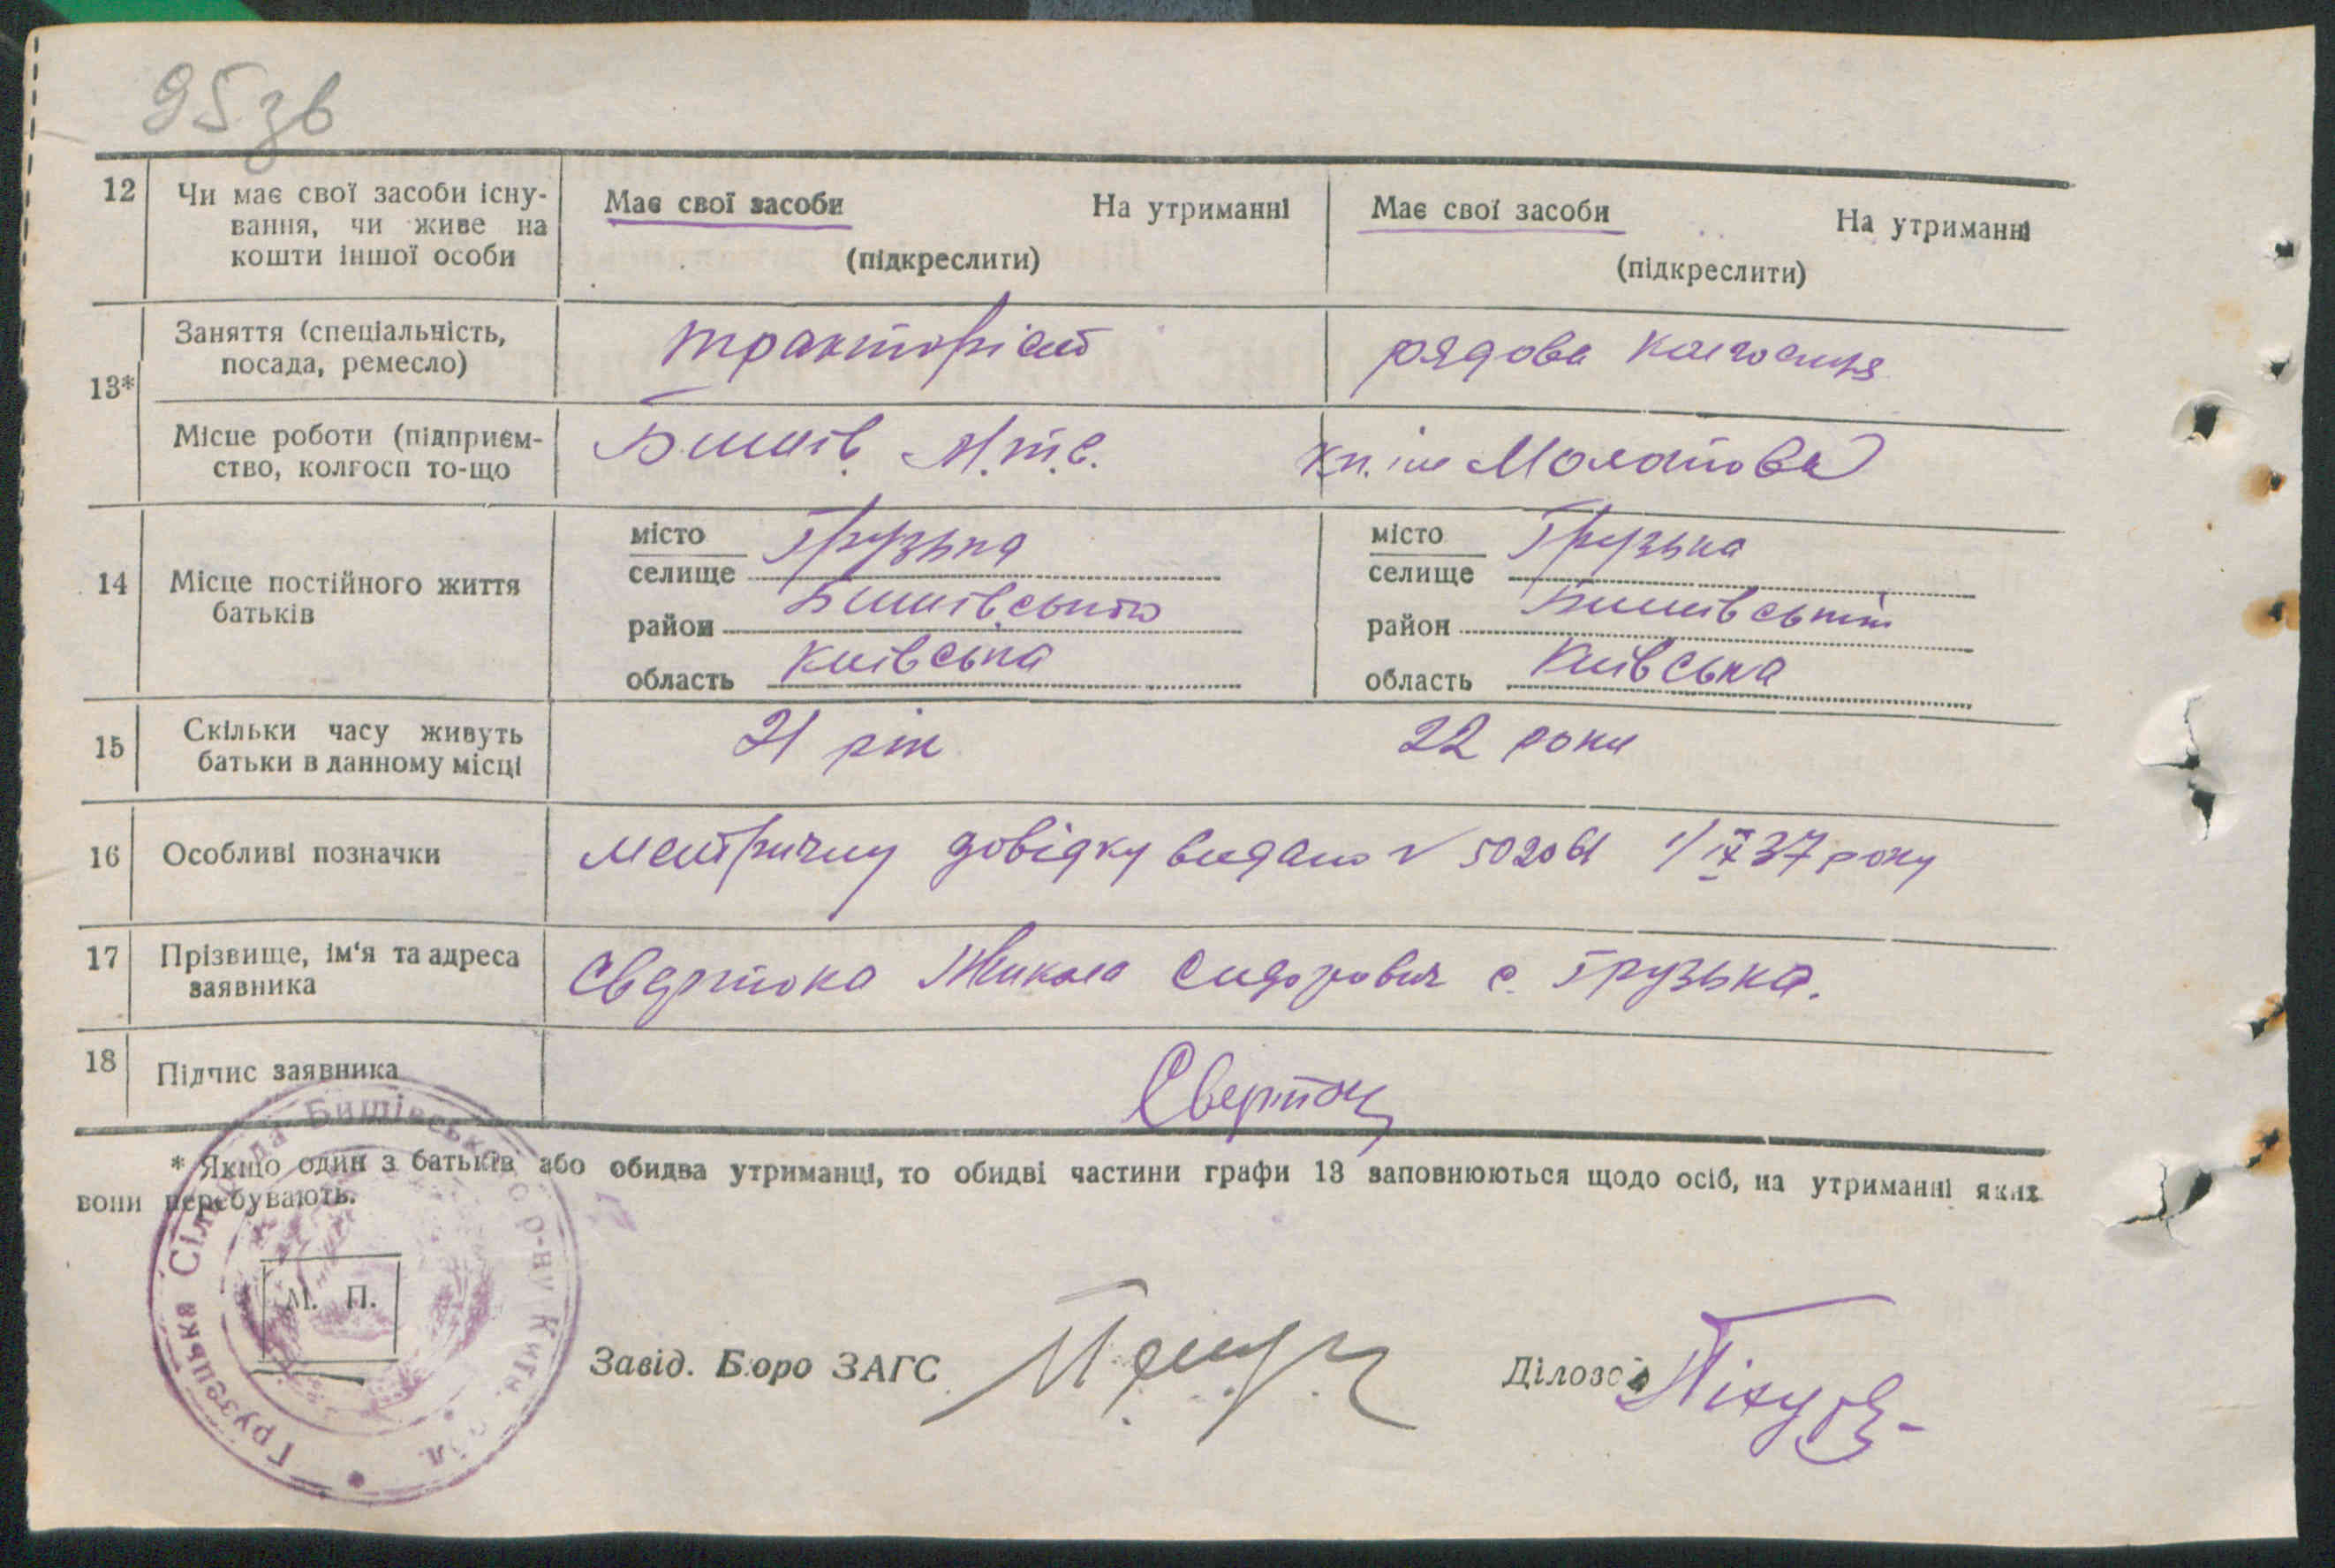 95зв
12 Чи має свої засоби існу- Має свої засоби На утриманні Має свої засоби На утриманні
вання, чи живе на
кошти іншої особи (підкреслити) (підкреслити)
13* Заняття (спеціальність, тракторіст рядова колгоспня
посада, ремесло)
Місце роботи (підприєм- Бишів. М.т.с. кп. ім Молотова
ство, колґосп то-що
14 Місце постійного життя батьків
місто Грузька місто Грузька
селище селище
район Бишівського район Бишівський
область Київська область Київська
15 Скільки часу живуть 21 рік 22 роки
батьки в данному місці
16 Особливі позначки метричну довідку видано 1/IX 37 року
17 Прізвище, ім'я та адреса Свертока Микола Сидорович с. Грузька.
заявника
18 Підпис заявника Свертока
* Якщо один з батьків або обидва утриманці, то обидві частини графи 13 заповнюються щодо осіб, на утриманні яких
вони перебувають.
Грузецька Сільрада Бишівського р-ну Київ. обл.
М. П.
Завід. Бюро ЗАГС
Діловод